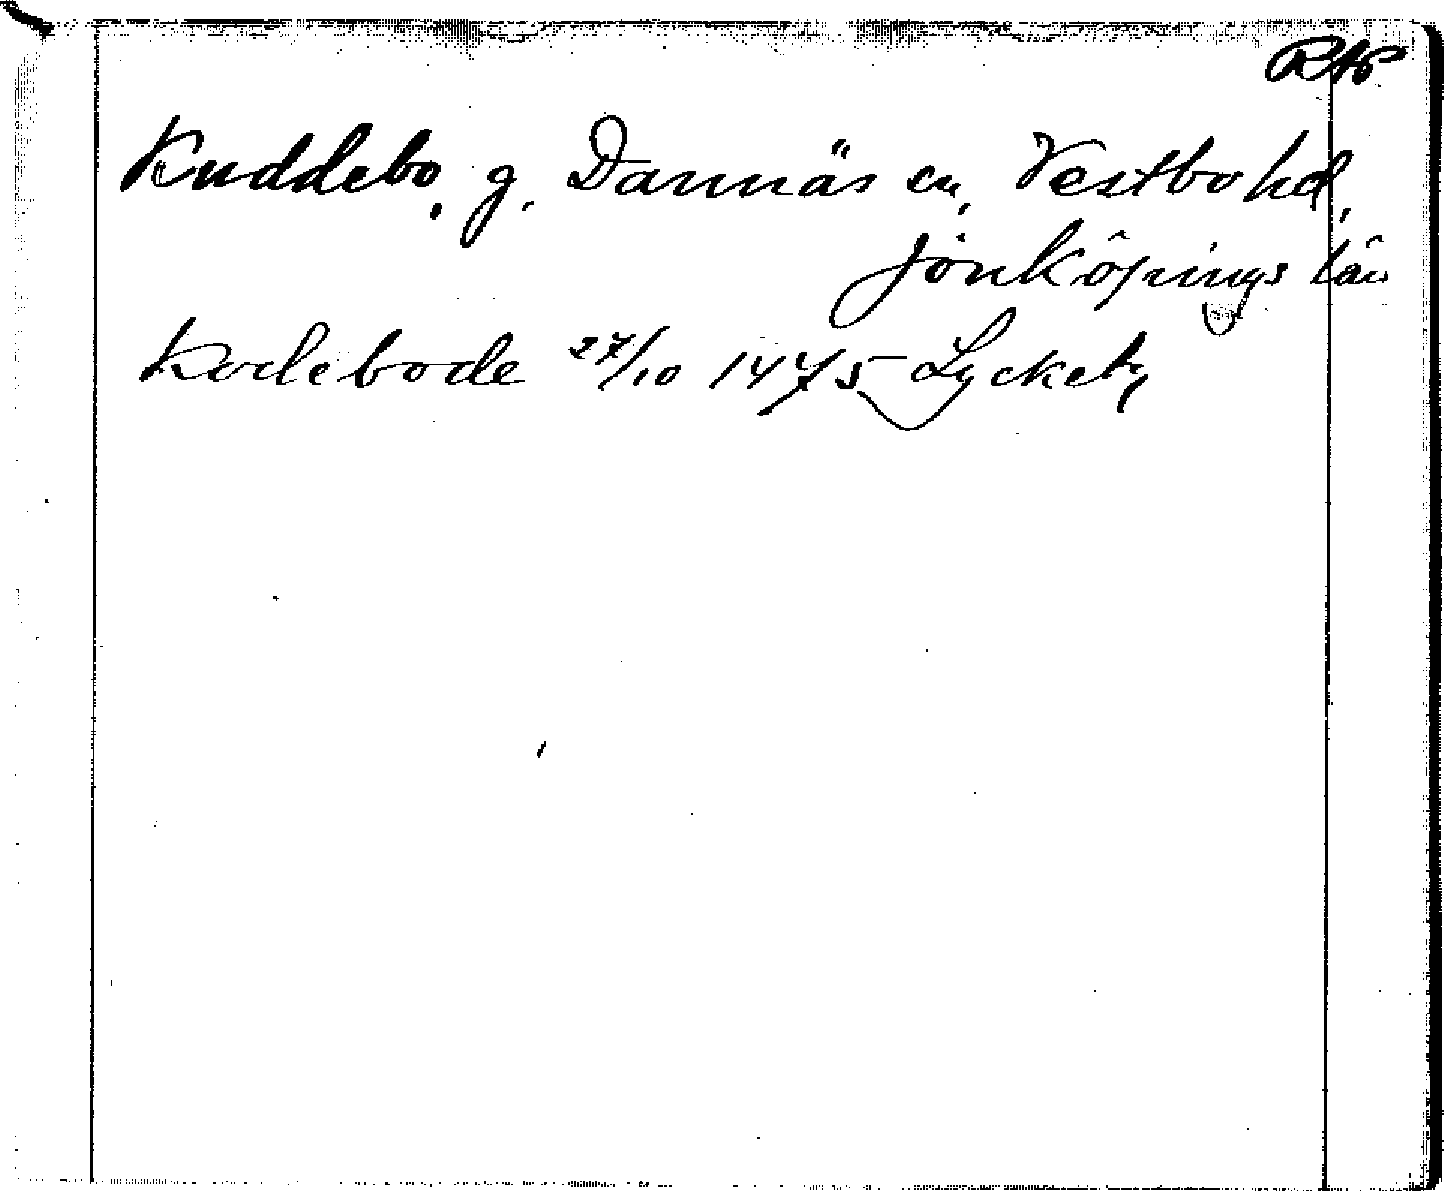 RAP
Kuddebo, g, Dannäs sn, Vestbo hd,
Jönköpings län
Kodebode 27/10 1475 Lyckeh,